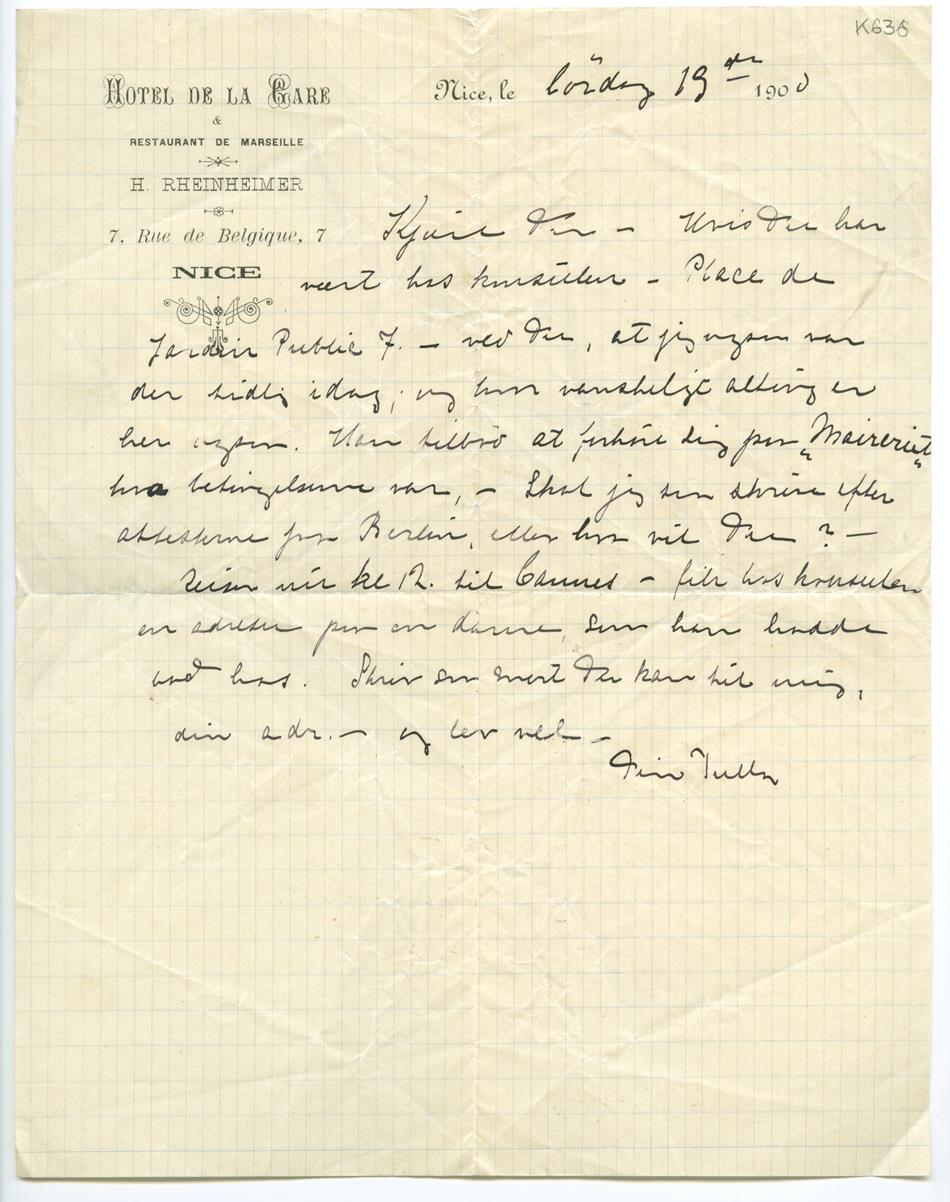 K636
HOTEL DE LA GARE
&
RESTAURANT DE MARSEILLE
H. RHEINHEIMER
7, Rue de Belgique, 7
NICE
Nice, le lördag 19de 1900
Kjäre Du – Hvis Du har
vært hos konsulen – Place de
Jardin Public 7. – ved Du, at jeg ogsaa var
der tidlig idag, og hvor vanskeligt alting er
her ogsaa. Han tilbød at forhøre sig paa „Maireriet“
hva betingelserne var, – Skal jeg saa skrive efter
attesterne fra Berlin, eller hva vil Du? –
Reiser nu kl 12. til Cannes – fik hos konsulen
en adresse paa en dame, som han hadde
vød hos. Skriv saa snart Du kan til mig,
din adr. – og lev vel –
Din Tulla